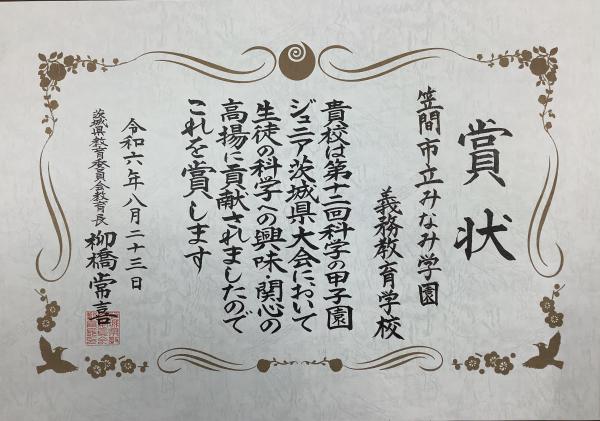 賞状
笠間市立みなみ学園
義務教育学校
貴校は第十二回科学の甲子園
ジュニア茨城県大会において
生徒の科学への興味・関心の
高揚に貢献されましたので
これを賞します
令和六年八月二十三日
茨城県教育委員会教育長
柳橋常喜